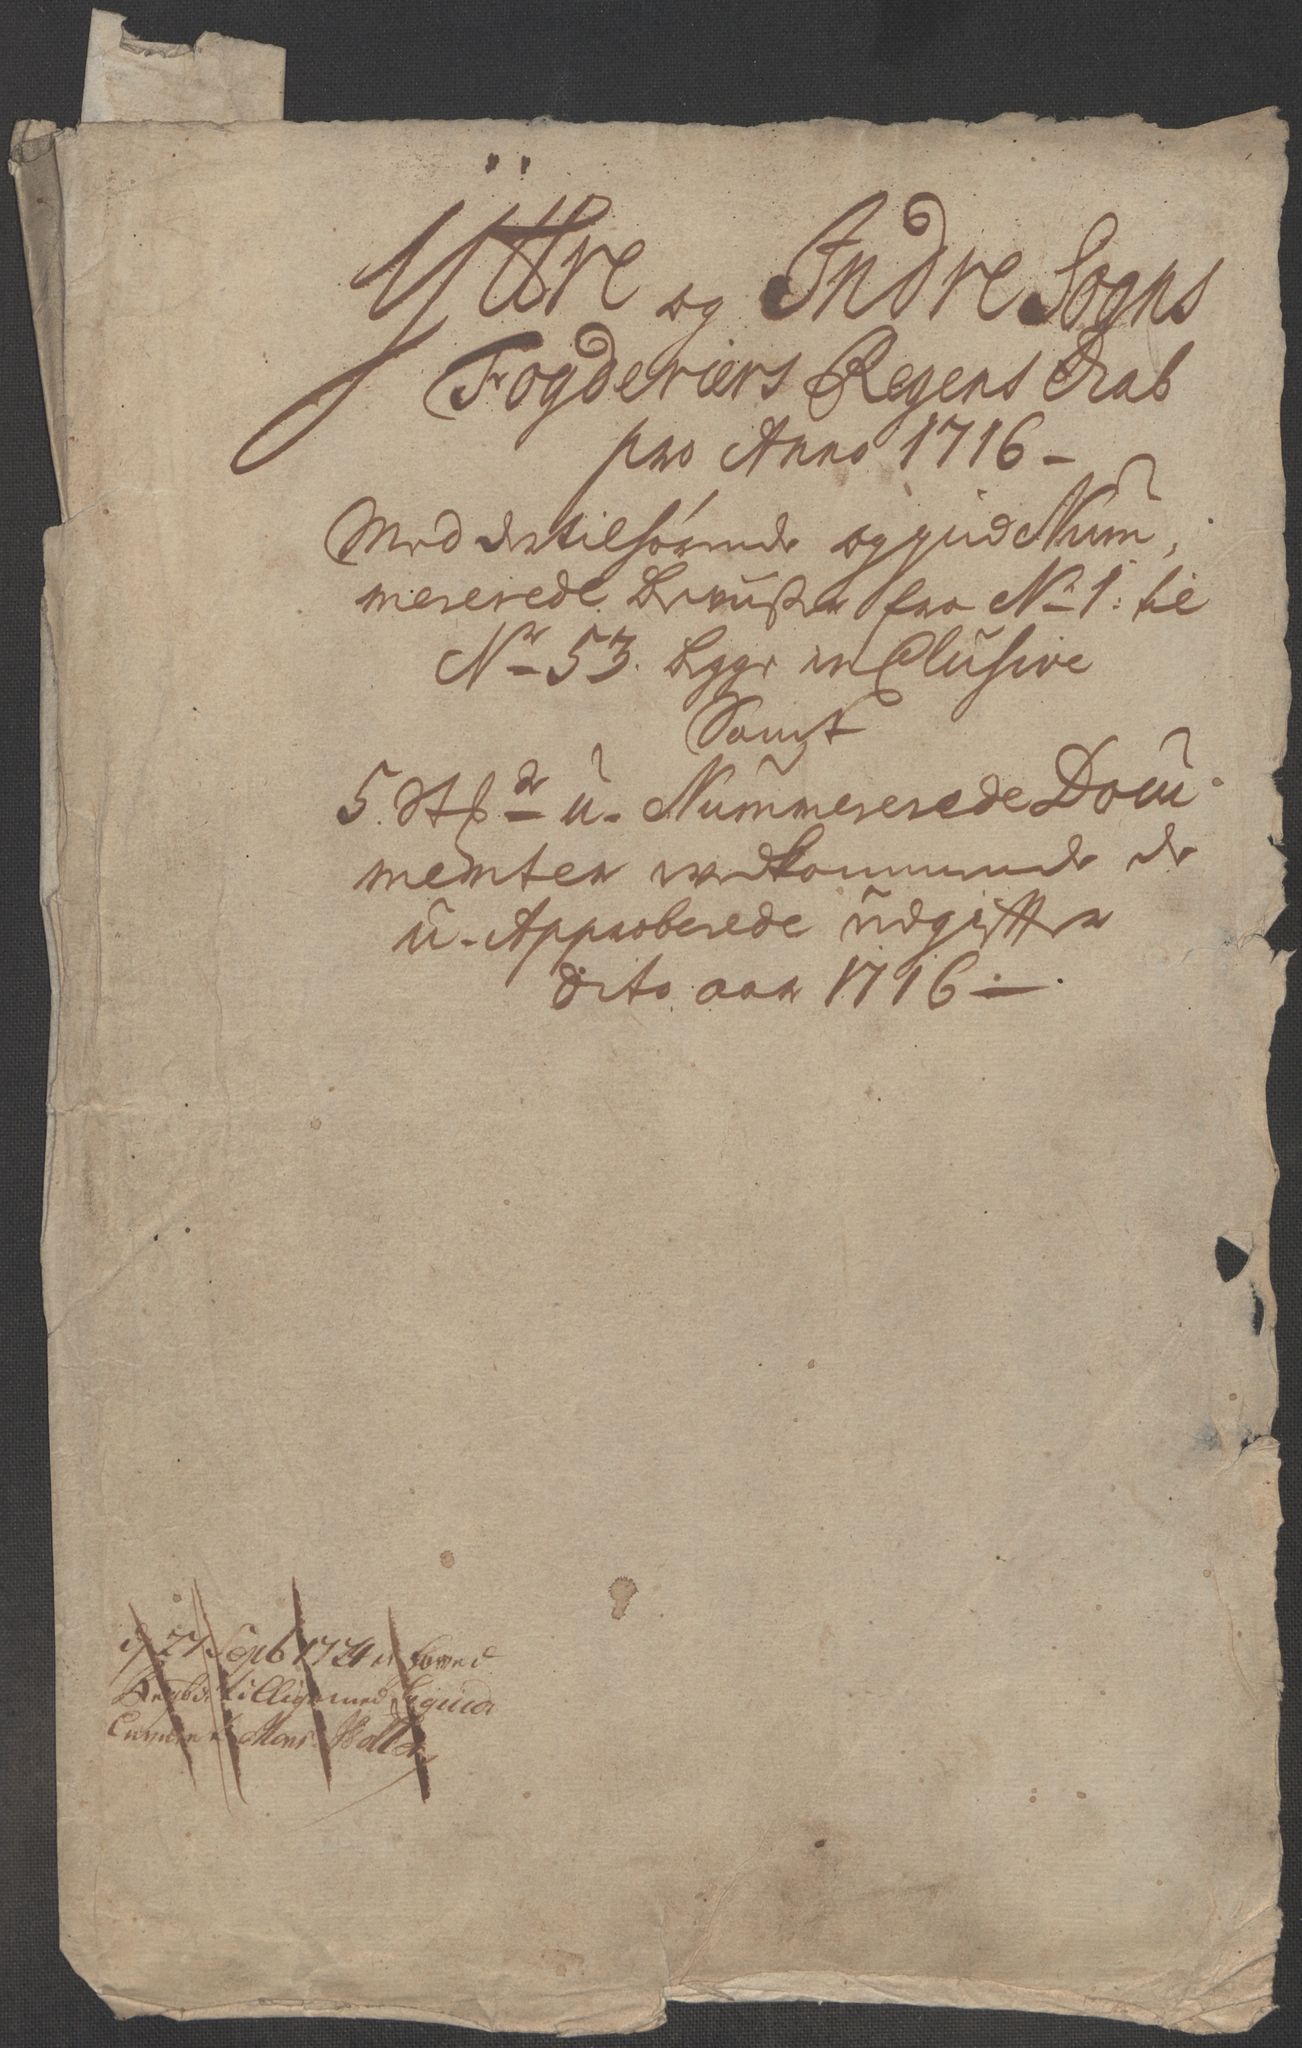 Ÿttre og Indre Sogns
Fogderiers Regenskab
pro Anno 1716 –
Med dertilhørende og paa Num-
mererede beviiser fra No 1: til
No 53. begge inclusive
Samt
5. St: u-Nummererede Docu-
menter vedkommende de
u-Approberede udgiffter
dito aar 1716 –
27 Sept 1724 er
tillige med
Mons